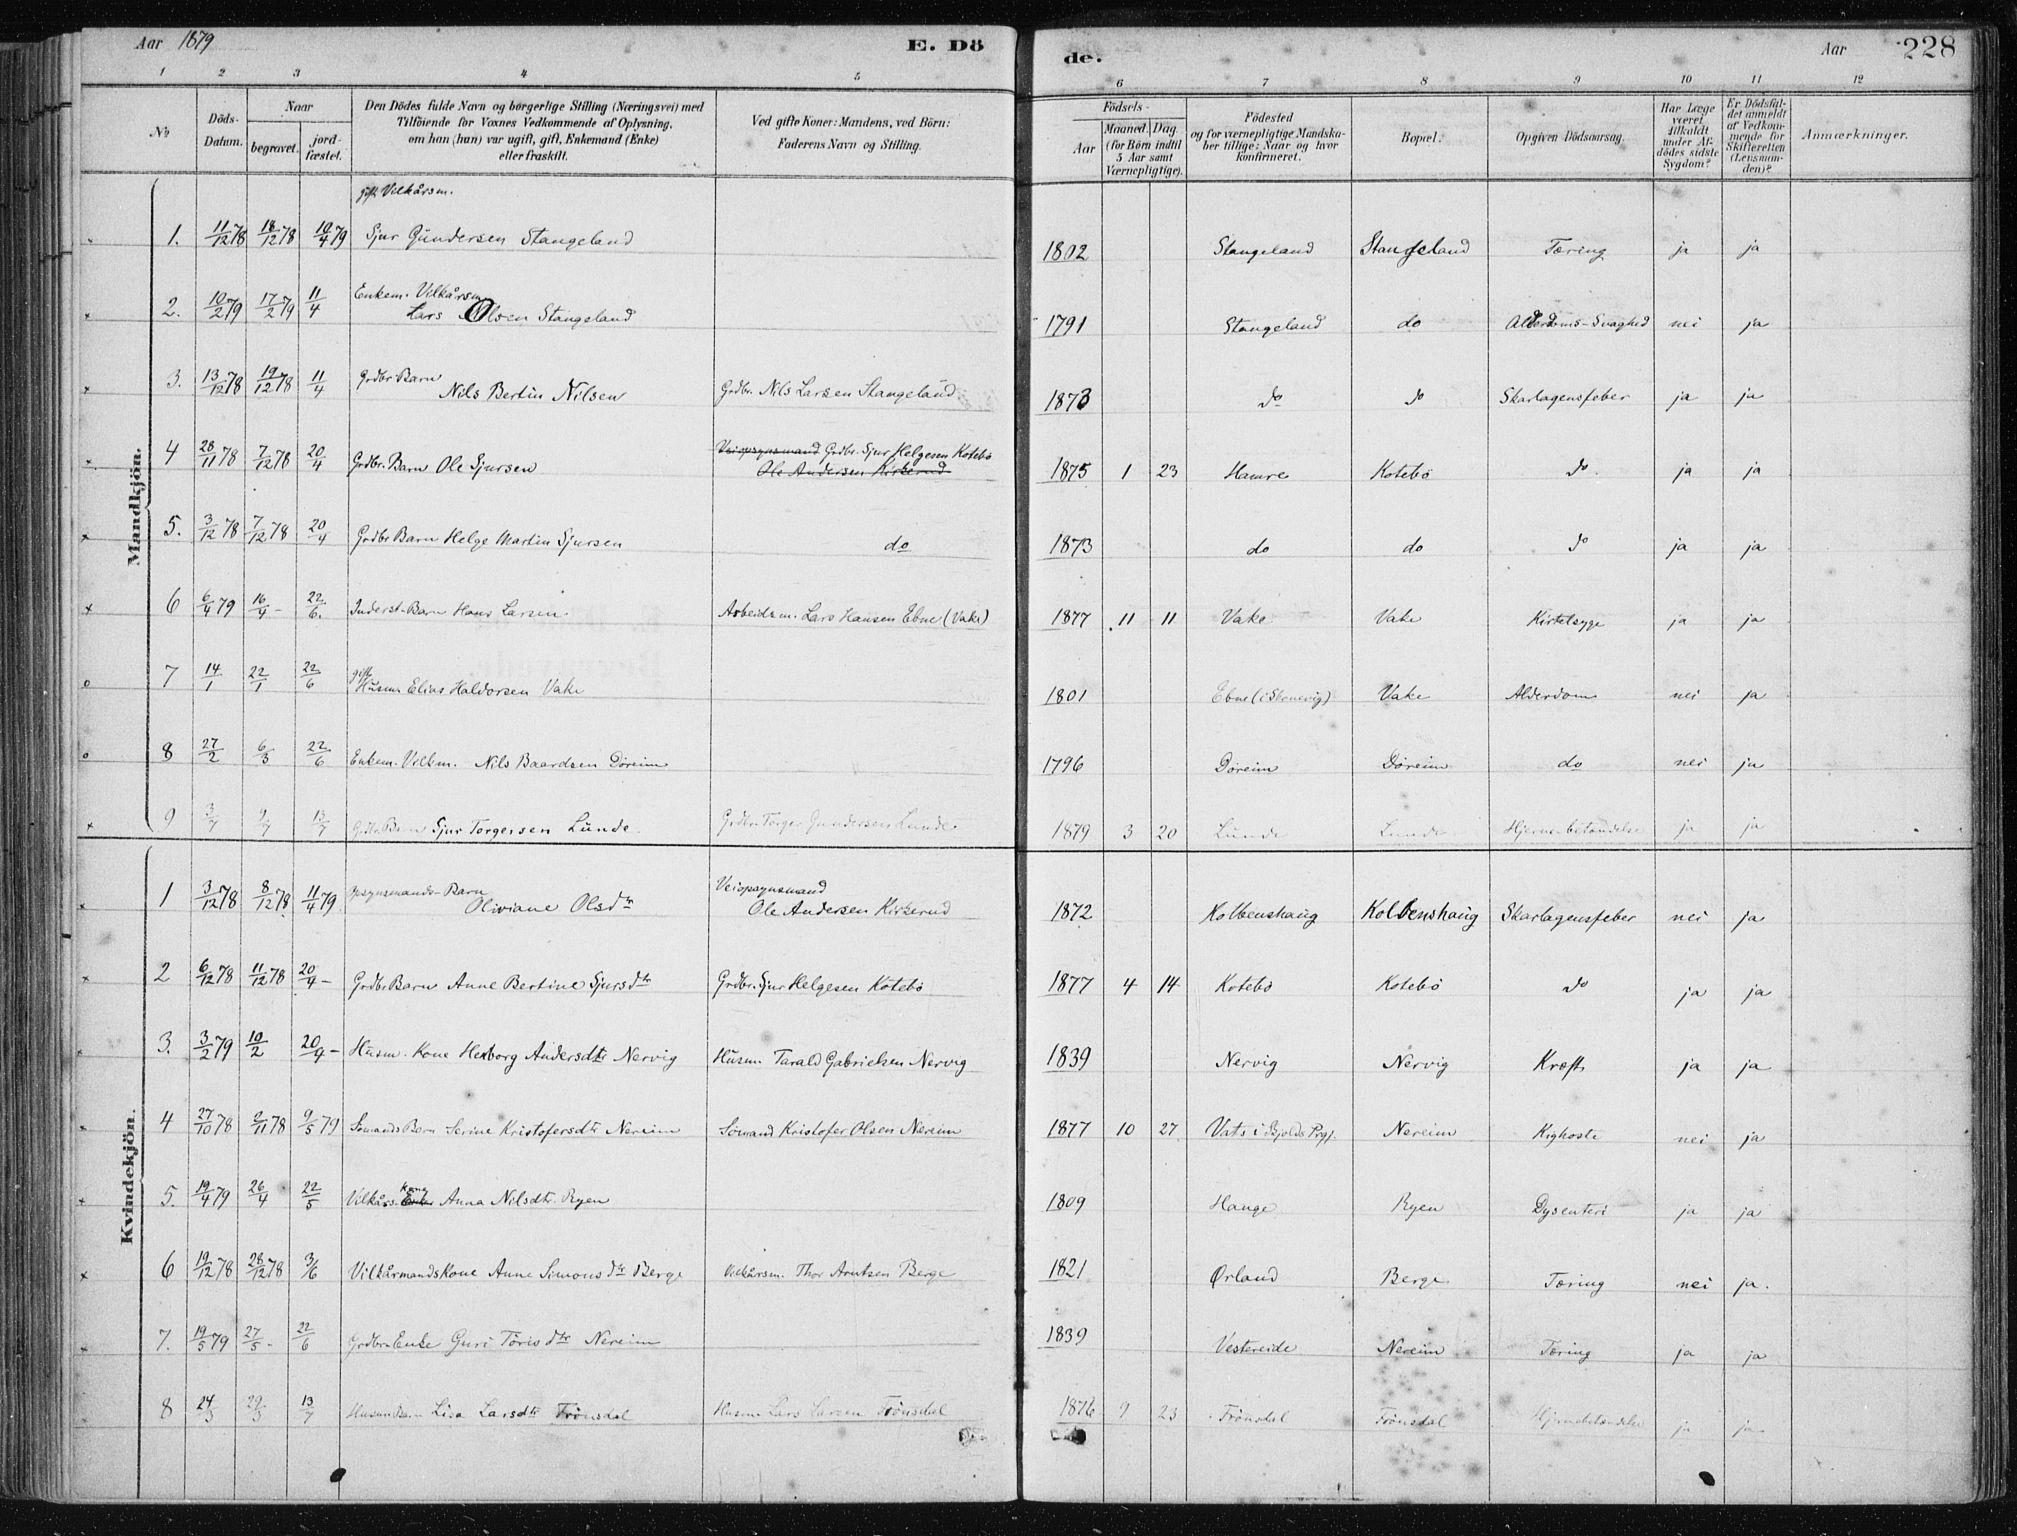 Aar 1879 E. Dö de. Aar 228
1 2 3 4 5 6 7 8 9 10 11 12
No
Döds-Datum.
Naar
begravet.
jord-fæstet.
Den Dödes fulde Navn og borgerlige Stilling (Næringsvei) med
Tilföiende for Voxnes Vedkommende af Oplysning,
om han (hun) var ugift, gift, Enkemand (Enke)
eller fraskilt.
Ved gifte Koner: Mandens, ved Börn:
Faderens Navn og Stilling.
Födsels-
Aar
Maaned. Dag
(for Börn indtil
5 Aar samt
Værnepligtige).
Födested
og for værnepligtige Mandska-
ber tillige: Naar og hvor
konfirmeret.
Bopæl.
Opgiven Dödsaarsag.
Har Læge
været
tilkaldt
under Af-
dödes sidste
Sygdom?
Er Dödsfal-
det anmeldt
af Vedkom-
mende for
Skifteretten
(Lensman-
den)?
Anmærkninger.
Mandkjön.
gift Vilkårsm.
1. 11/12 78 18/12 78 10/4 79 Sjur Gundersen Stangeland 1802 Stangeland Stangeland Tæring ja ja
Enkem. Vilkårsm
2. 10/2 79 17/2 79 11/4 Lars Olsen Stangeland 1791 Stangeland do Alderdoms-Svaghed nei ja
3. 13/12 78 19/12 78 11/4 Grdbr Barn Nils Bertin Nilsen Grdbr. Nils Larsen Stangeland 1873 do do Skarlagensfeber ja ja
4 28/11 78 7/12 78 20/4 Grdbr. Barn Ole Sjursen Veiopsynsmand Grdbr. Sjur Helgesen Kotebö 1875 1 23 Hamre Kotebö do ja ja
Ole Andersen Kirkerud
5. 3/12 78 7/12 78 20/4 Grdbr Barn Helge Martin Sjursen do 1873 do do do ja ja
6 6/4 79 16/4 - 22/6. Inderst-Barn Hans Larsen Arbeidsm. Lars Hansen Ebne (Vake) 1877 11 11 Vake Vake Kirtelsyge ja ja
7 14/1 22/1 22/6 gift Husm. Elias Haldorsen Vake 1801 Ebne (i Skonevig) Vake Alderdom nei ja
8 27/2 6/3 22/6 Enkem. Vilkm. Nils Baardsen Döreim 1796 Döreim Döreim do nei ja
9 3/7 9/7 13/7 Grdbr. Barn Sjur Torgersen Lunde Grdbr. Torger Gundersen Lunde 1879 3 20 Lunde Lunde Hjernebetændelse ja ja
Kvindekjön.
1 3/12 78 8/12 78 11/4 79 Opsynsmands-Barn Oliviane Olsdtr Veiopsynsmand Ole Andersen Kirkerud 1872 Kolbenshaug Kolbenshaug Skarlagensfeber nei ja
2 6/12 78 11/12 78 20/4 - Grdbr Barn Anne Bertine Sjursdtr Grdbr. Sjur Helgesen Kotebö 1877 4 14 Kotebö Kotebö do ja ja
3. 3/2 79 10/2 20/4 - Husm. Kone Herborg Andersdtr Nervig Husm. Tarald Gabrielsen Nervig 1839 Nervig Nervig Kræft ja ja
4 27/10 78 2/11 78 9/5 79 Sömands Barn Serine Kristofersdtr Nereim Sömand Kristofer Olsen Nereim 1877 10 27 Vats i Skjolds Prgj. Nereim Kighoste nei ja
5. 19/4 79 26/4 22/5 Vilkårs. Enke Kone Anna Nilsdtr. Ryen 1809 Hauge Ryen Dysenteri ja ja
6 19/12 78 28/12 78 3/6 Vilkårmands Kone Anne Simonsdtr Berge Vilkårsm. Thor Arntsen Berge 1821 Ørland Berge Tæring nei ja.
7. 19/5 79 27/5 - 22/6 Grdbr. Enke Guri Törisdtr Nereim 1839 Vestereide Nereim Tæring ja ja
8 24/3 29/3 13/7 Husm Barn Lisa Larsdtr Frönsdal Husm Lars Larsen Frönsdal 1876 9 23 Frönsdal Frönsdal Hjernebetændelse ja ja